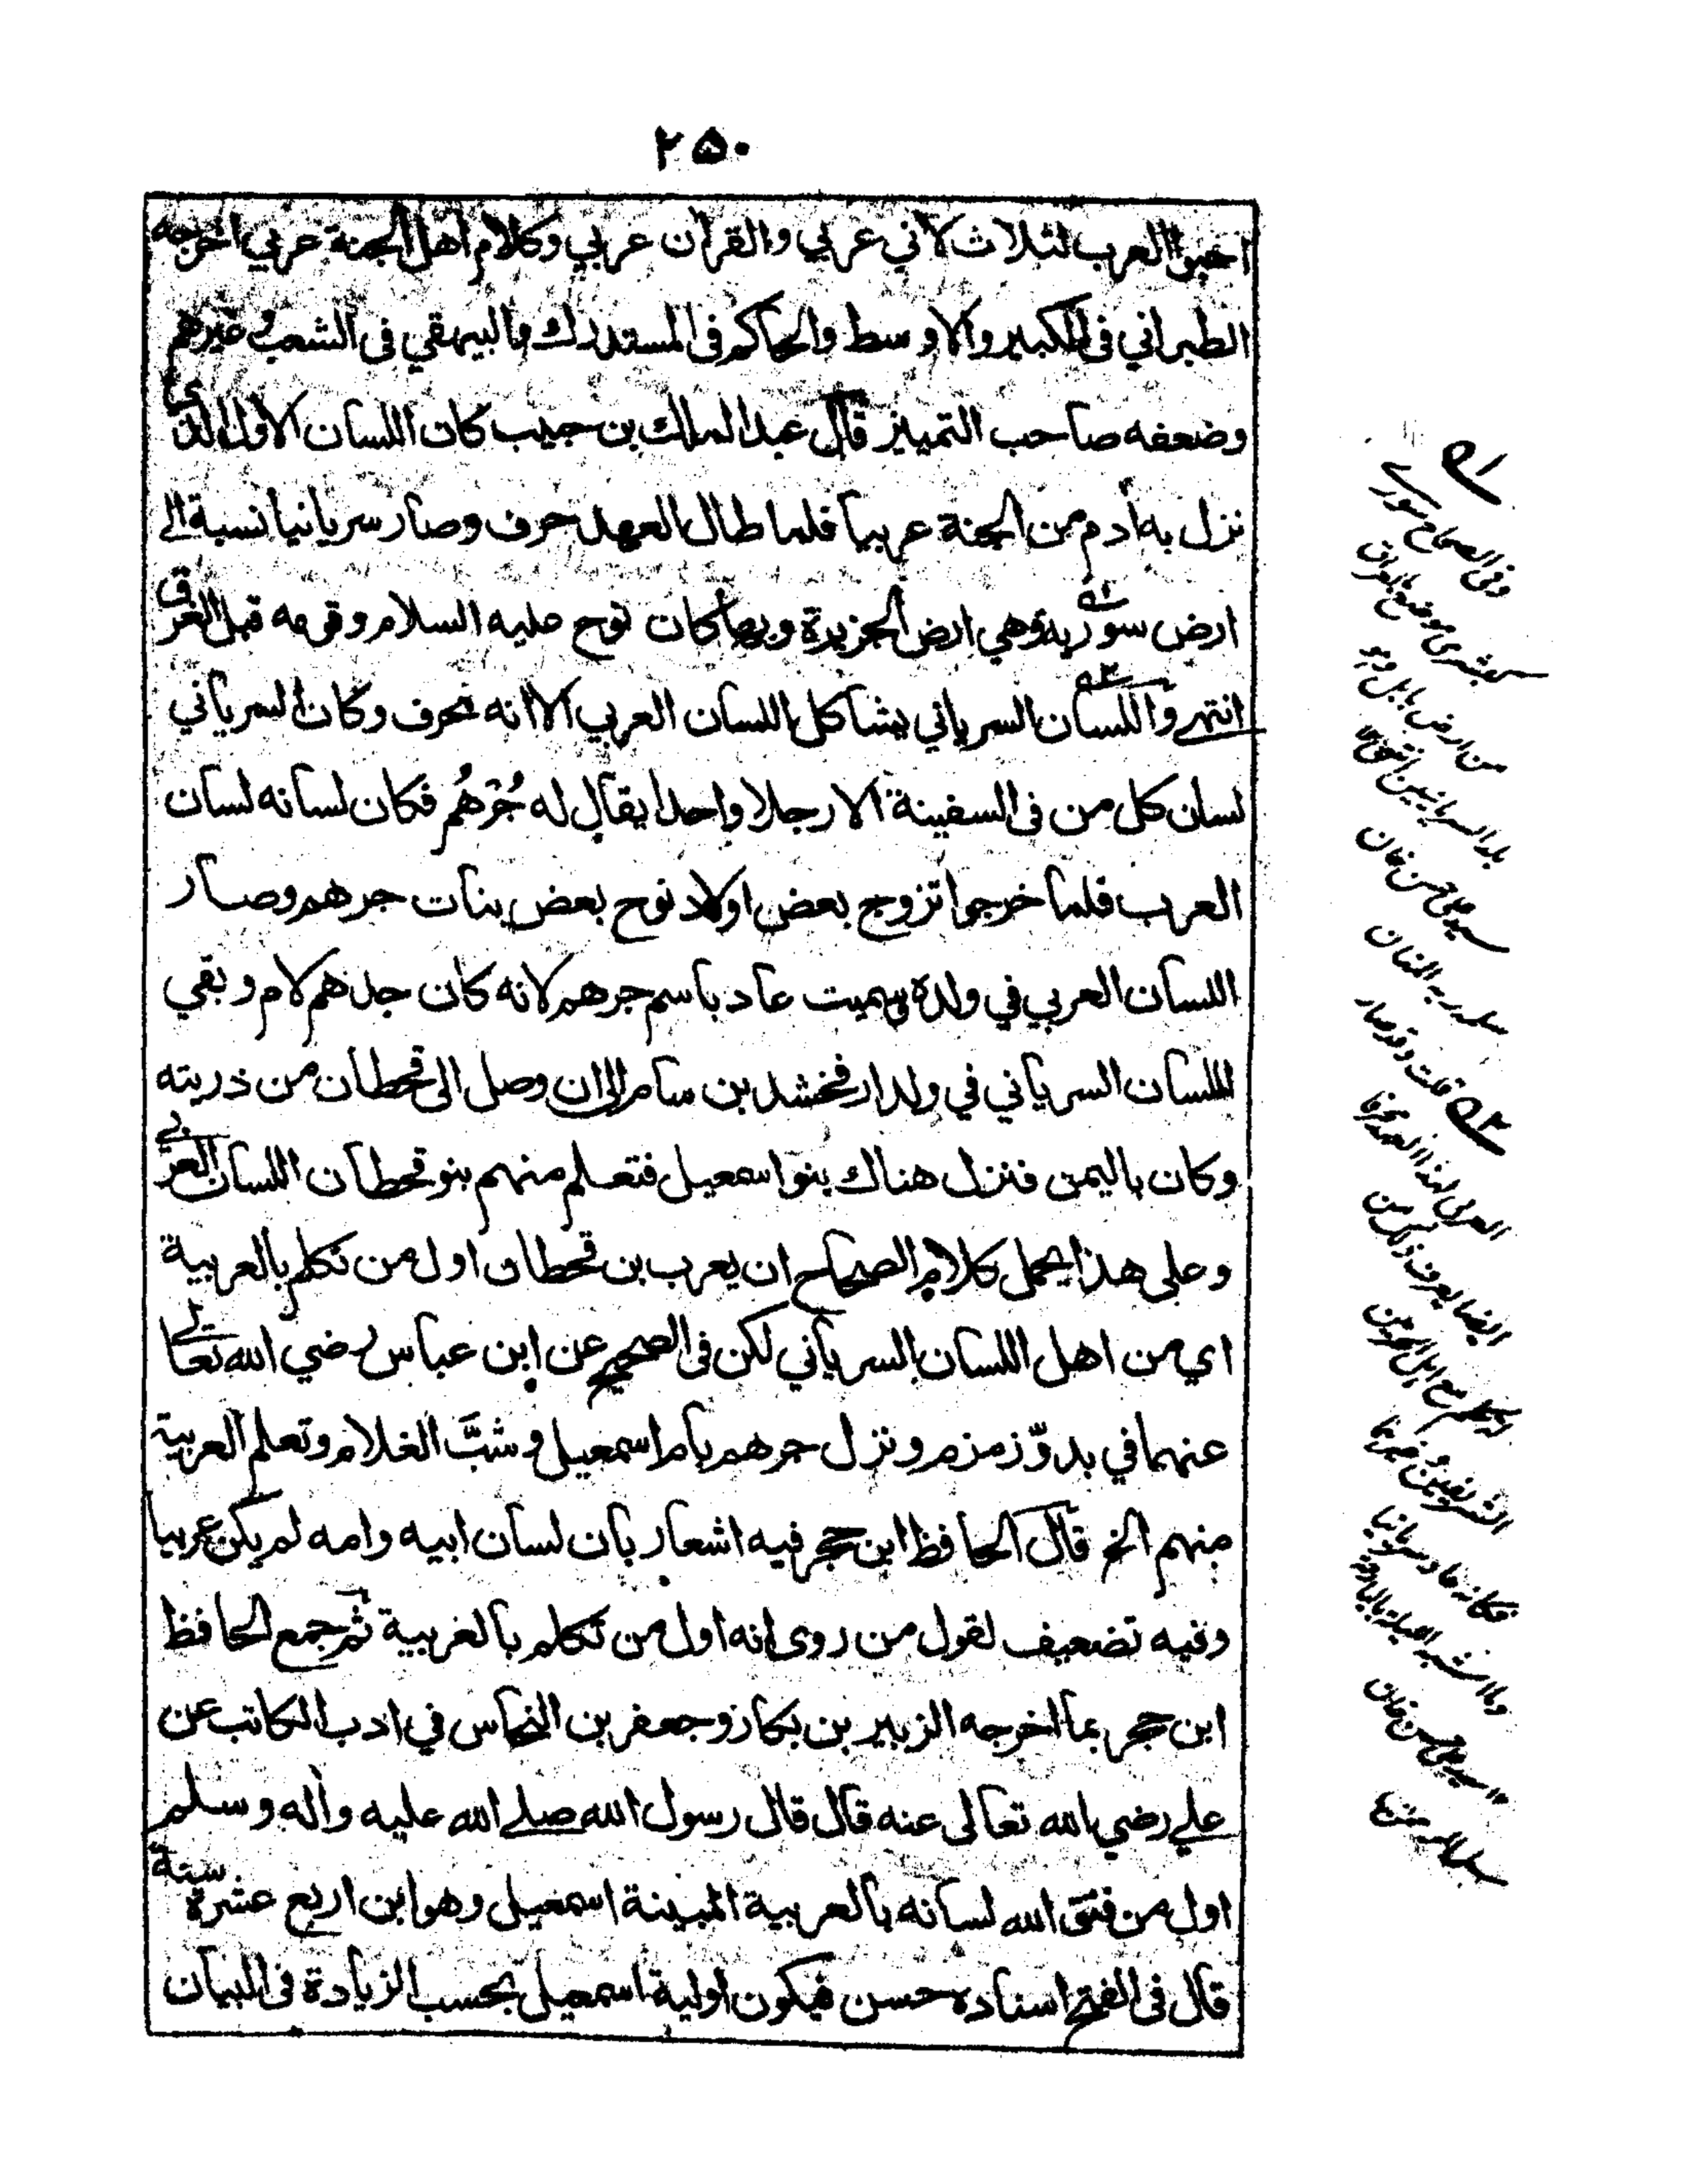 ٢٥٠
احبوا العرب لثلاث لأني عربي والقرآن عربي وكلام اهل الجنة عربي اخرجه
الطبراني فى الكبير والاوسط والحاكم فى المستدرك والبيهقي فى الشعب وغيرهم
وضعفه صاحب التمييز قال عبد الملك بن حبيب كان اللسان الاول الذي
نزل به أدم من الجنة عربيا فلما طال العهد حرف وصار سريانيا نسبة الى
ارض سورية وهي ارض الجزيرة وبها كان نوح عليه السلام وقومه قبل الغرق
انتهى واللسان السرياني يشاكل اللسان العربي الا انه محرف وكان السرياني
لسان كل من فى السفينة الا رجلا واحدا يقال له جُرْهُم فكان لسانه لسان
العرب فلما خرجوا تزوج بعض اولاد نوح بعض بنات جرهم وصار
اللسان العربي في ولده وسميت عاد باسم جرهم لانه كان جدهم لام وبقي
اللسان السرياني في ولد ارفخشد بن سام الى ان وصل الى قحطان من ذريته
وكان باليمن فنزل هناك بنو اسمعيل فتعلم منهم بنو قحطان اللسان العربي
وعلى هذا يحمل كلام الصحاح ان يعرب بن قحطان اول من تكلم بالعربية
اي من اهل اللسان السرياني لكن فى الصحيح عن ابن عباس رضي الله تعالى
عنهما في بدوّ زمزم ونزل جرهم بام اسمعيل وشبَّ الغلام وتعلم العربية
منهم الخ قال الحافظ ابن حجر فيه اشعار بان لسان ابيه وامه لم يكن عربيا
وفيه تضعيف لقول من روى انه اول من تكلم بالعربية ثم جمع الحافظ
ابن حجر بما اخرجه الزبير بن بكار وجعفر بن النحاس في ادب الكاتب عن
علي رضي الله تعالى عنه قال قال رسول الله صلى الله عليه وأله وسلم
اول من فتق الله لسانه بالعربية المبينة اسمعيل وهو ابن اربع عشرة سنة
قال فى الفتح اسناده حسن فيكون اولية اسمعيل بحسب الزيادة فى البيان
وفى الصحاح سورى
كبشرى موضع بالعراق
من ارض بابل وهو
بلد السريانيين انتهى
سيد علي حسن خان
سلمه ربه المنان
قلت وقد صار
العربي لهذا العهد محرفا
ايضا يعرف ذلك من
تكلم مع اهل الحرمين
الشريفين وغيرهما
فكانه عاد سريانيا
وما اشبه الليلة بالبارحة
سيد علي حسن خان
سلمه الله تعالى